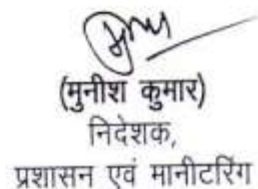 (मुनीश कुमार)
निदेशक,
प्रशासन एवं मानीटरिंग